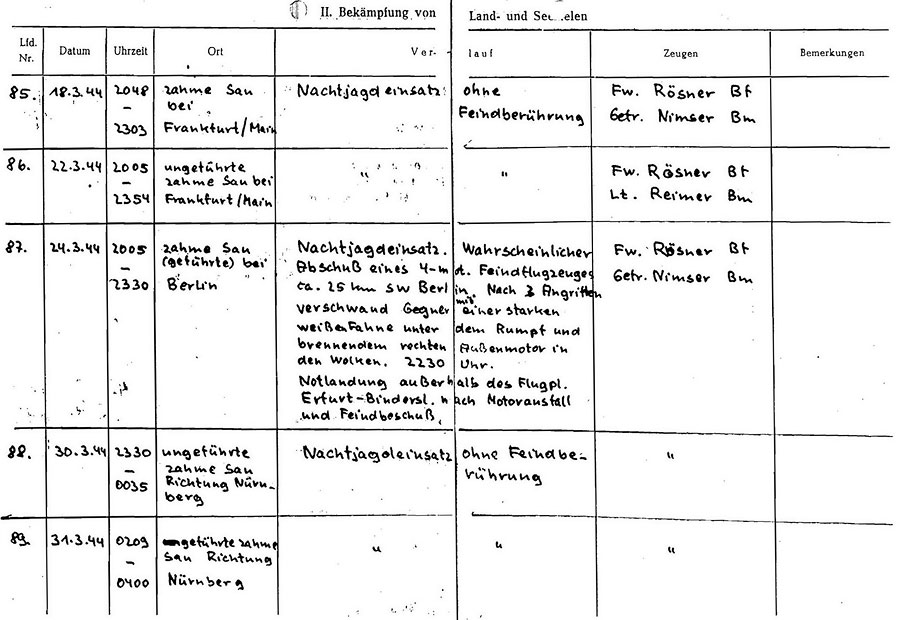 II. Bekämpfung von Land- und
Lfd. Nr. Datum Uhrzeit Ort Ver- lauf Zeugen Bemerkungen
85. 18.3.44 2048 – 2303
zahme Sau
bei
Frankfurt/Main
Nachtjagdeinsatz ohne
Feindberührung
Fw. Rösner Bf
Gefr. Nimser Bm
86. 22.3.44 2005 – 2354
ungeführte
zahme Sau bei
Frankfurt/Main
" "
Fw. Rösner Bf
Lt. Reimer Bm
87. 24.3.44 2005 – 2330
zahme Sau
(geführte) bei
Berlin
Nachtjagdeinsatz. Wahrscheinlicher
Abschuß eines 4-mot. Feindflugzeuges
ca. 25 km SW Berlin. Nach 3 Angriffen
verschwand Gegner mit einer starken
weißen Fahne unter dem Rumpf und
brennendem rechten Außenmotor in
den Wolken. 2230 Uhr.
Notlandung außerhalb des Flugpl.
Erfurt-Bindersl. nach Motorausfall
und Feindbeschuß.
Fw. Rösner Bf
Gefr. Nimser Bm
88. 30.3.44 2330 – 0035
ungeführte
zahme Sau
Richtung Nürn-
berg
Nachtjagdeinsatz ohne Feindbe-
rührung
"
89. 31.3.44 0209 – 0400
ungeführte zahme
Sau Richtung
Nürnberg
" " "